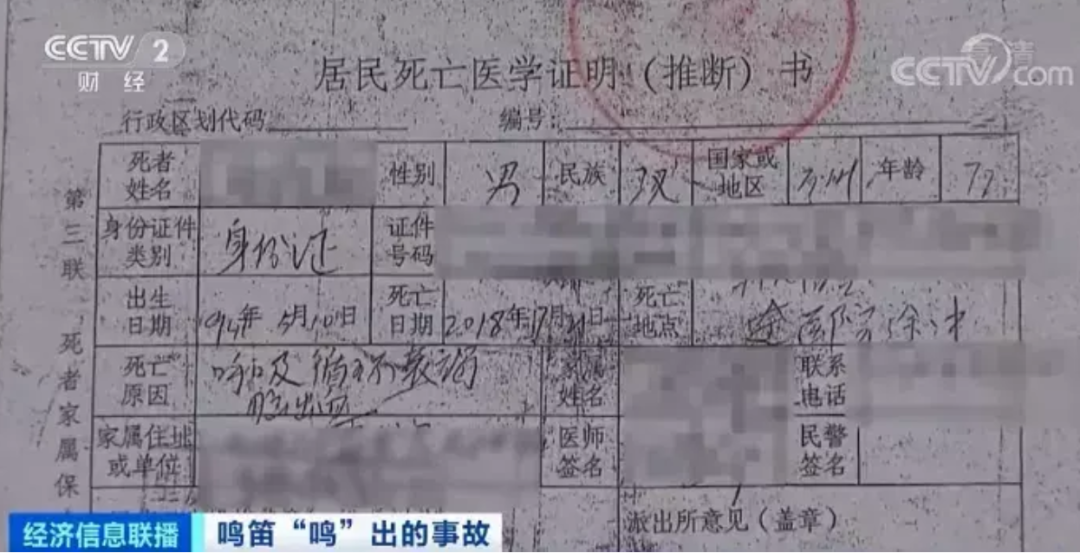 CCTV 2
财经
高清
CCTV.com
居民死亡医学证明（推断）书
行政区划代码 编号：
死者姓名 性别 男 民族 汉 国家或地区 年龄
身份证件类别 身份证 证件号码
出生日期 年5月10日 死亡日期 2018年 月 日 死亡地点
死亡原因 呼吸及循环衰竭 姓名 联系电话
脑出血
家属住址或单位 医师签名 民警签名
派出所意见（盖章）
第三联，死者家属保
经济信息联播 鸣笛“鸣”出的事故